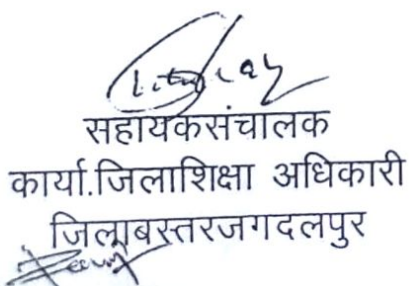 सहायकसंचालक
कार्या.जिलाशिक्षा अधिकारी
जिलाबस्तरजगदलपुर